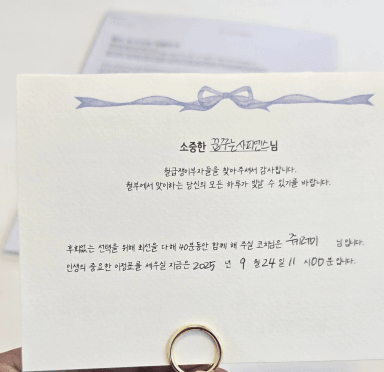 소중한 꿈꾸는사피엔스님
월급쟁이부자들을 찾아주셔서 감사합니다.
월부에서 맞이하는 당신의 모든 하루가 빛날 수 있기를 바랍니다.
후회없는 선택을 위해 최선을 다해 40분동안 함께 해 주실 코치님은 님 입니다.
인생의 중요한 이정표를 세우실 지금은 2025 년 9 월 24 일 11 시 00 분 입니다.